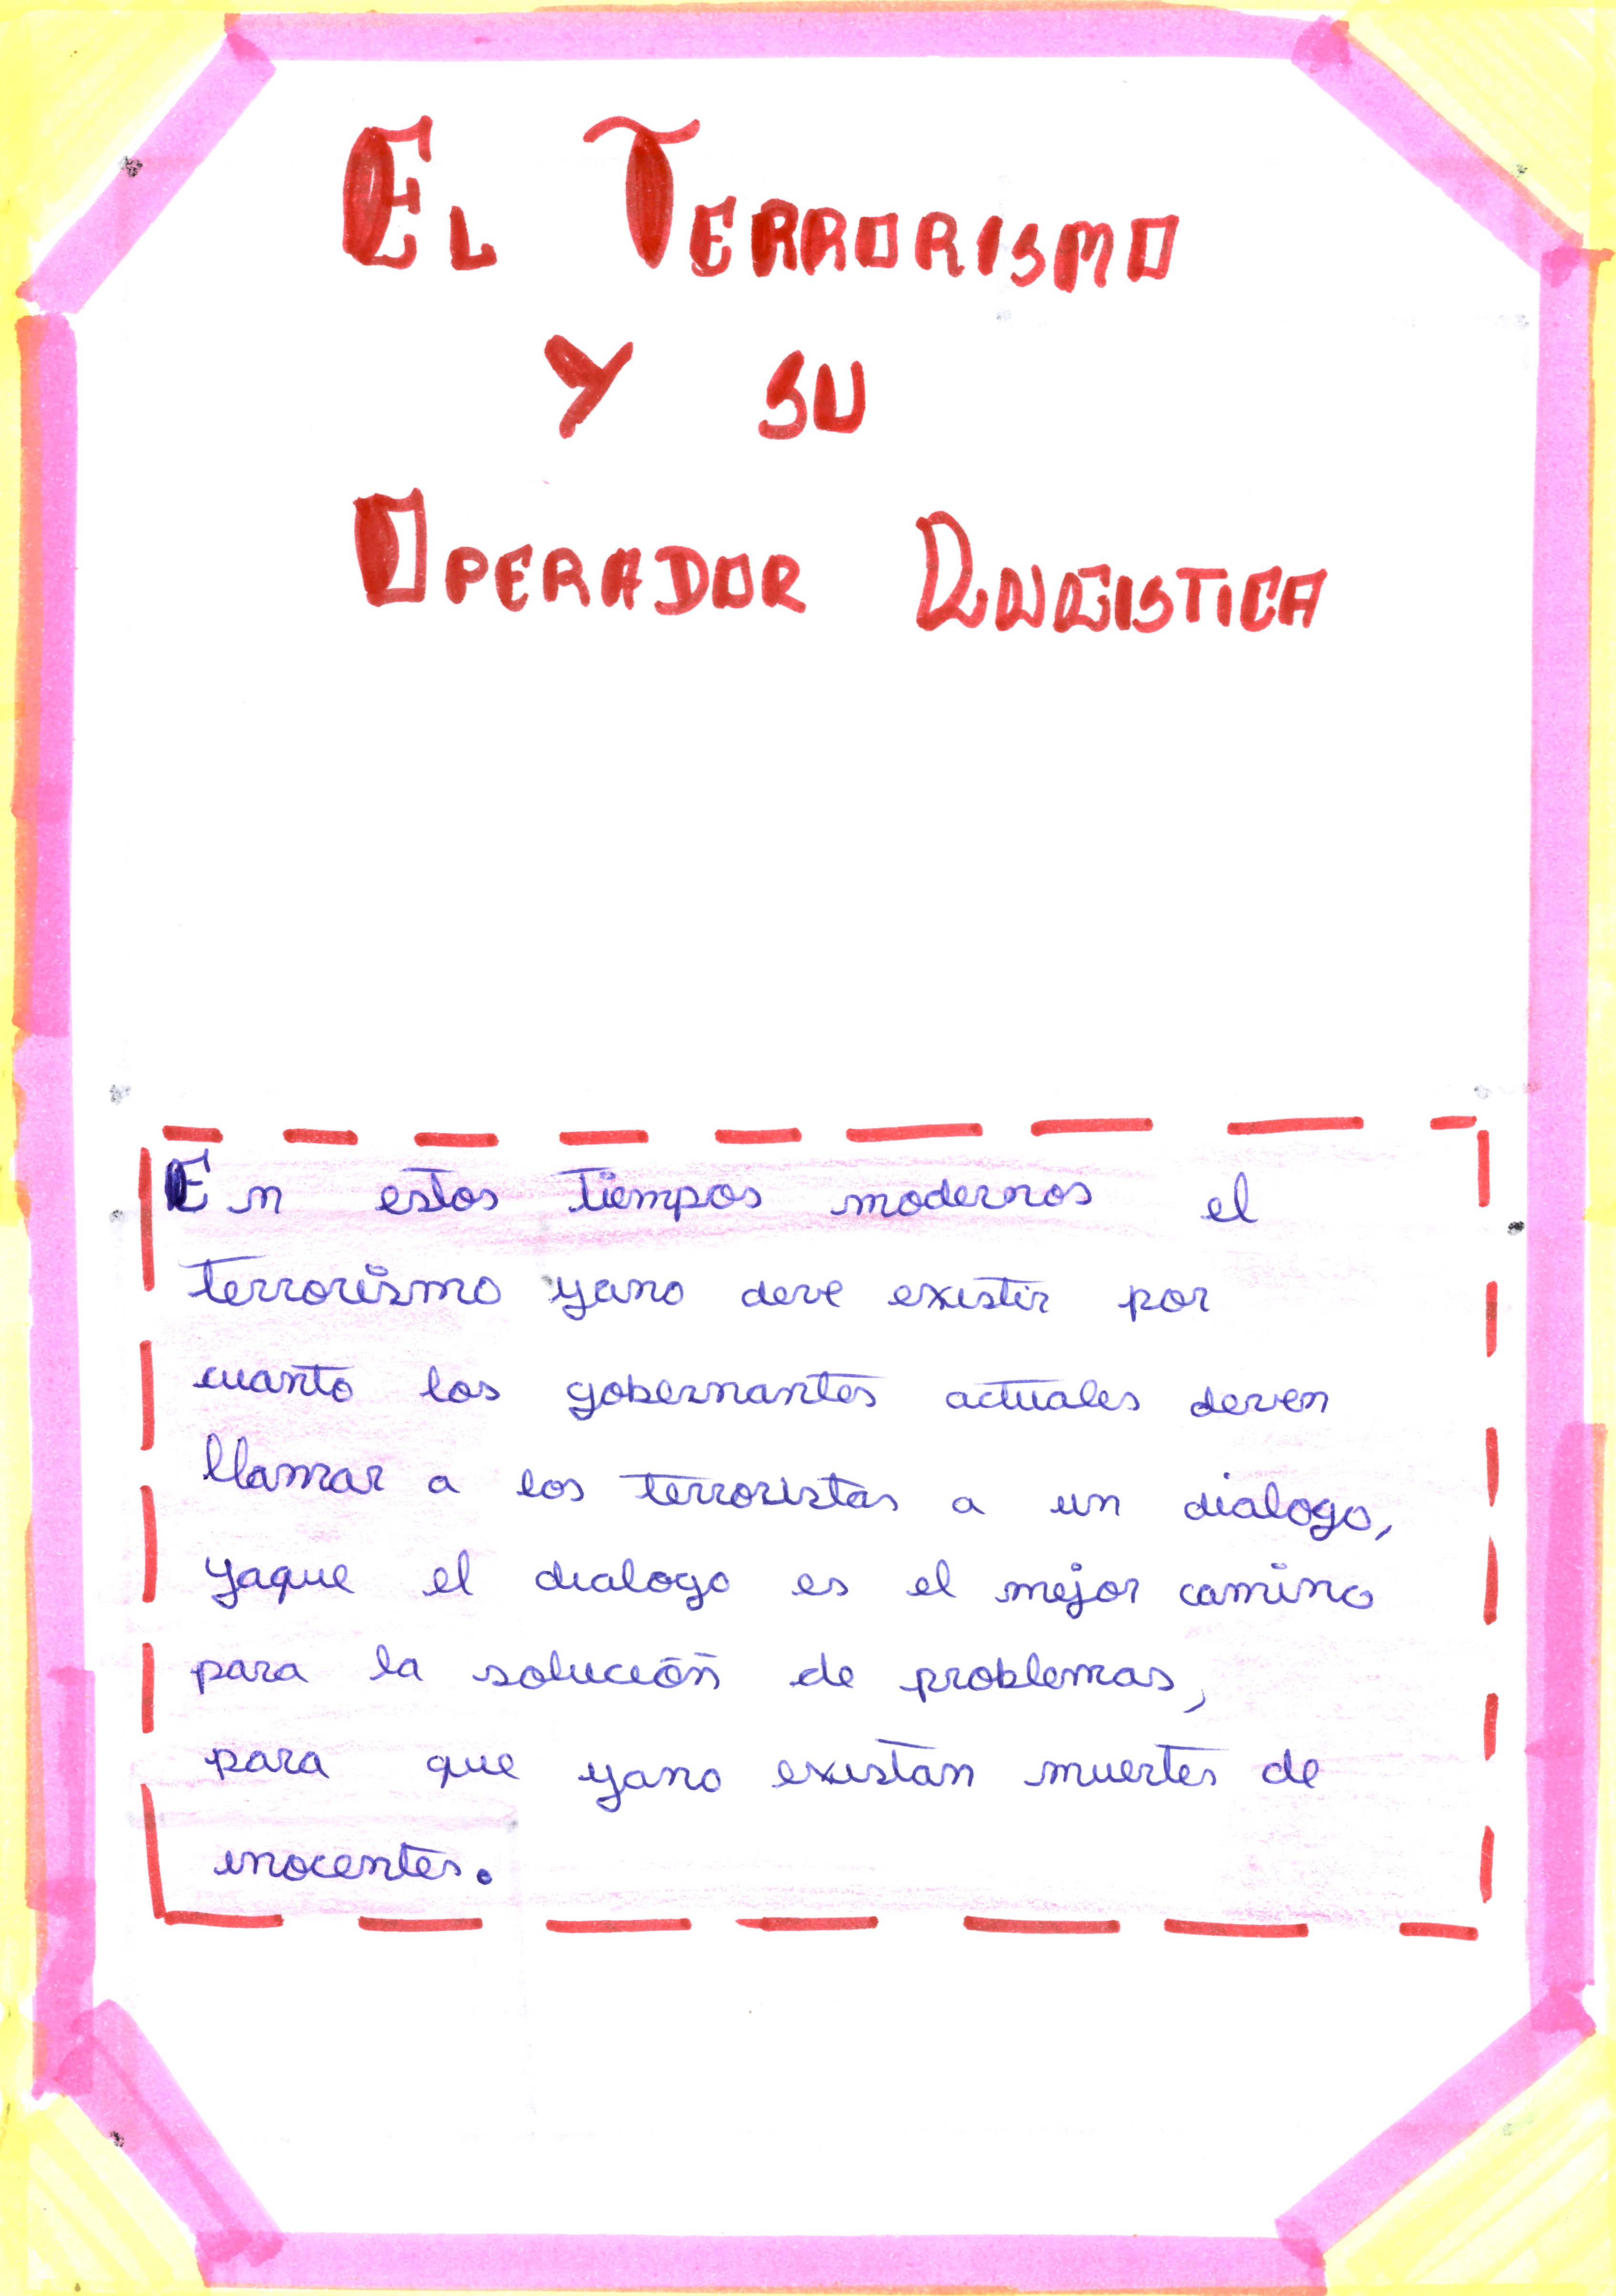 El Terrorismo
y su
Operador
En estos tiempos modernos el
terrorismo yano deve existir por
cuanto los gobernantes actuales deven
llamar a los terroristas a un dialogo,
yaque el dialogo es el mejor camino
para la solución de problemas,
para que yano existan muertes de
inocentes.